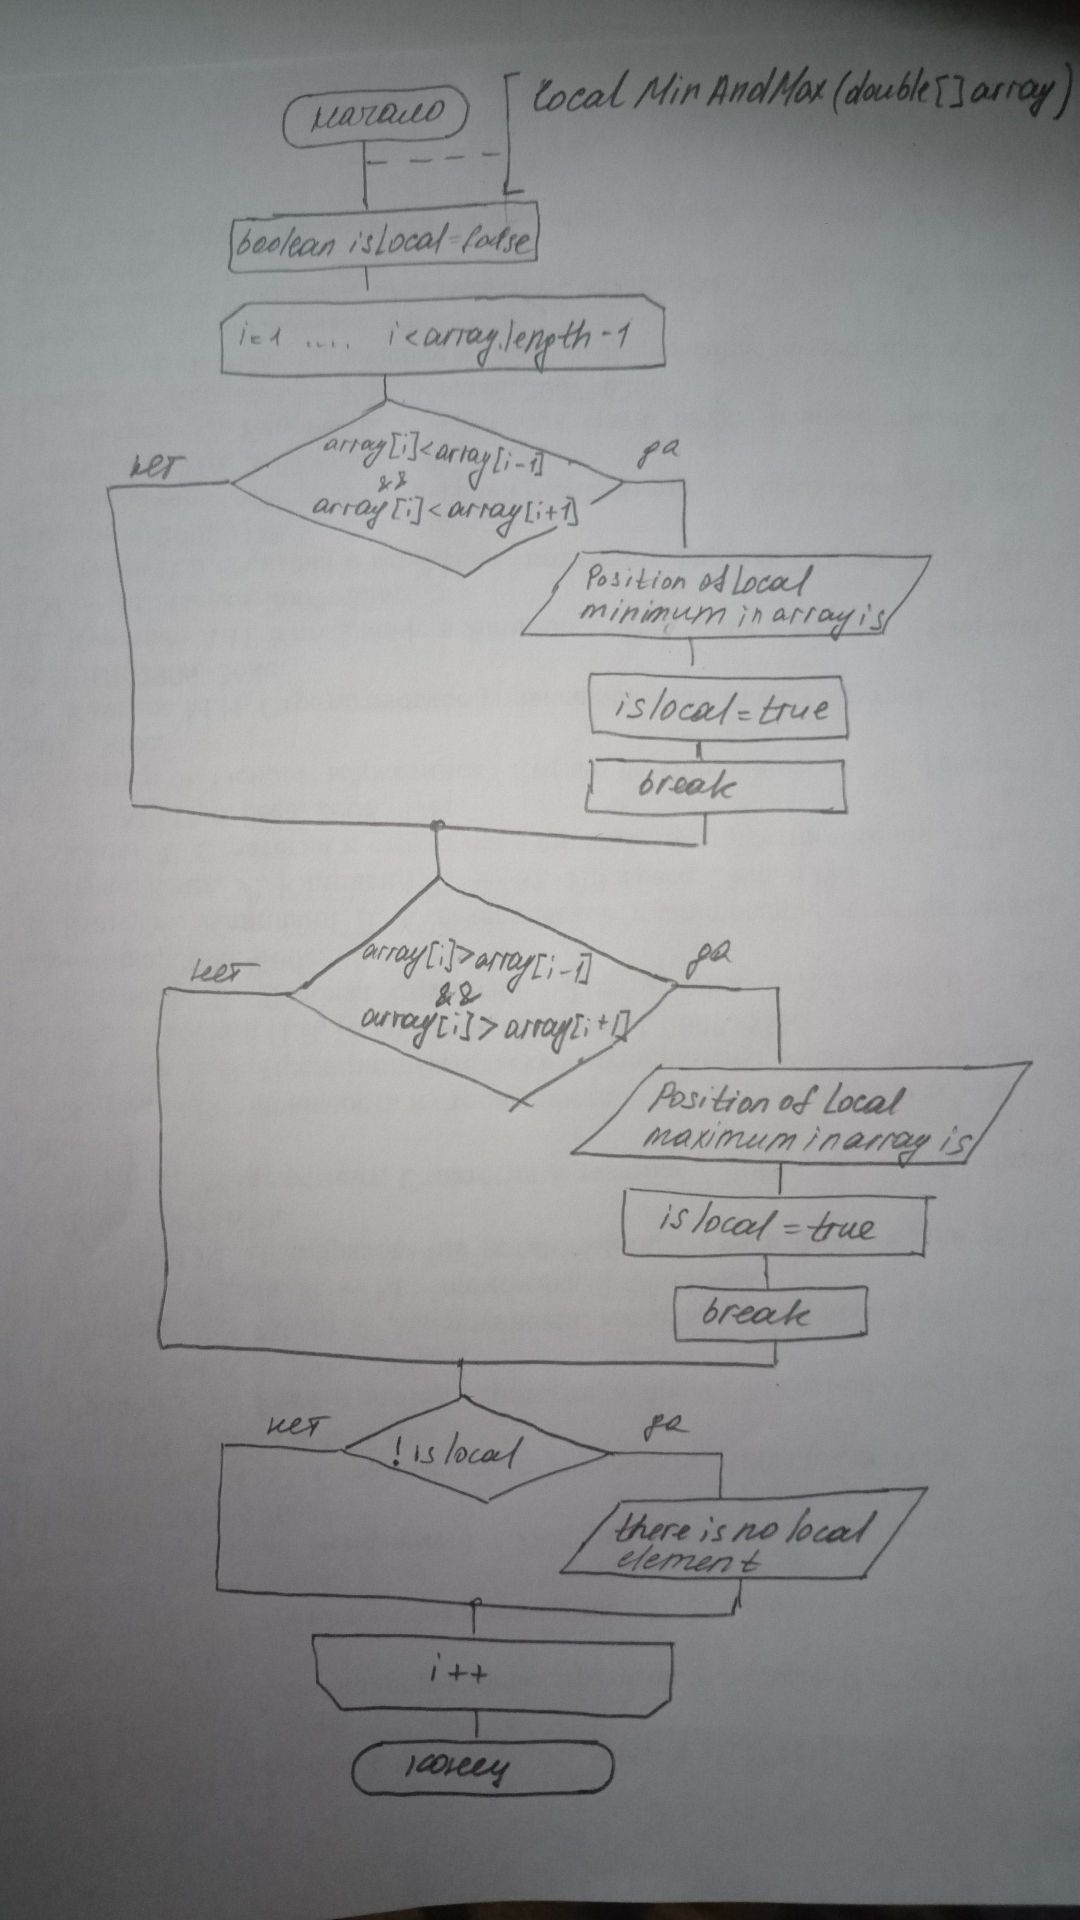 начало
local MinAndMax(double[] array)
boolean islocal=false
i=1 .... i<array.length-1
array[i]<array[i-1]
&&
array[i]<array[i+1]
нет
да
Position of local
minimum in array is
islocal=true
break
array[i]>array[i-1]
&&
array[i]>array[i+1]
нет
да
Position of local
maximum in array is
islocal=true
break
! islocal
нет
да
there is no local
element
i++
конец